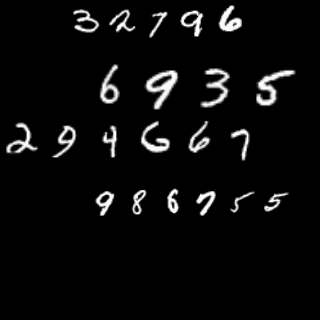 32796
6935
294667
986755